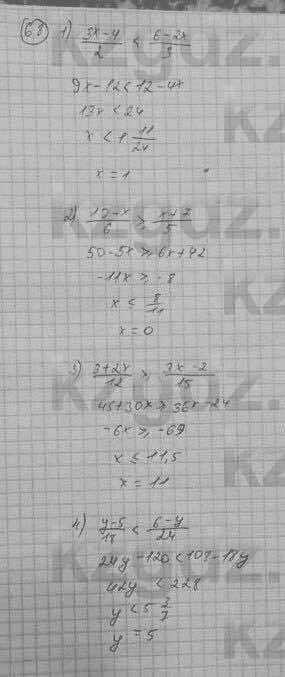 68 1) (3x-4)/2 < (6-2x)/3
9x-12<12-4x
13x<24
x<1 11/24
x=1
2) (10-x)/6 ⩾ (x+7)/5
50-5x⩾6x+42
-11x⩾-8
x ≤ 8/11
x=0
3) (3+2x)/12 ⩾ (3x-2)/15
45+30x⩾36x-24
-6x⩾-69
x≤11,5
x=11
4) (y-5)/18 < (6-y)/24
24y-120<108-18y
42y<228
y<5 3/7
y=5